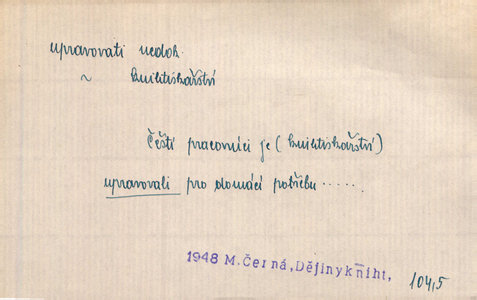 upravovati nedok.
~ knihtiskařství
Čeští pracovníci je (knihtiskařství)
upravovali pro domácí potřebu .....
1948 M. Černá, Dějiny kniht,
104,5